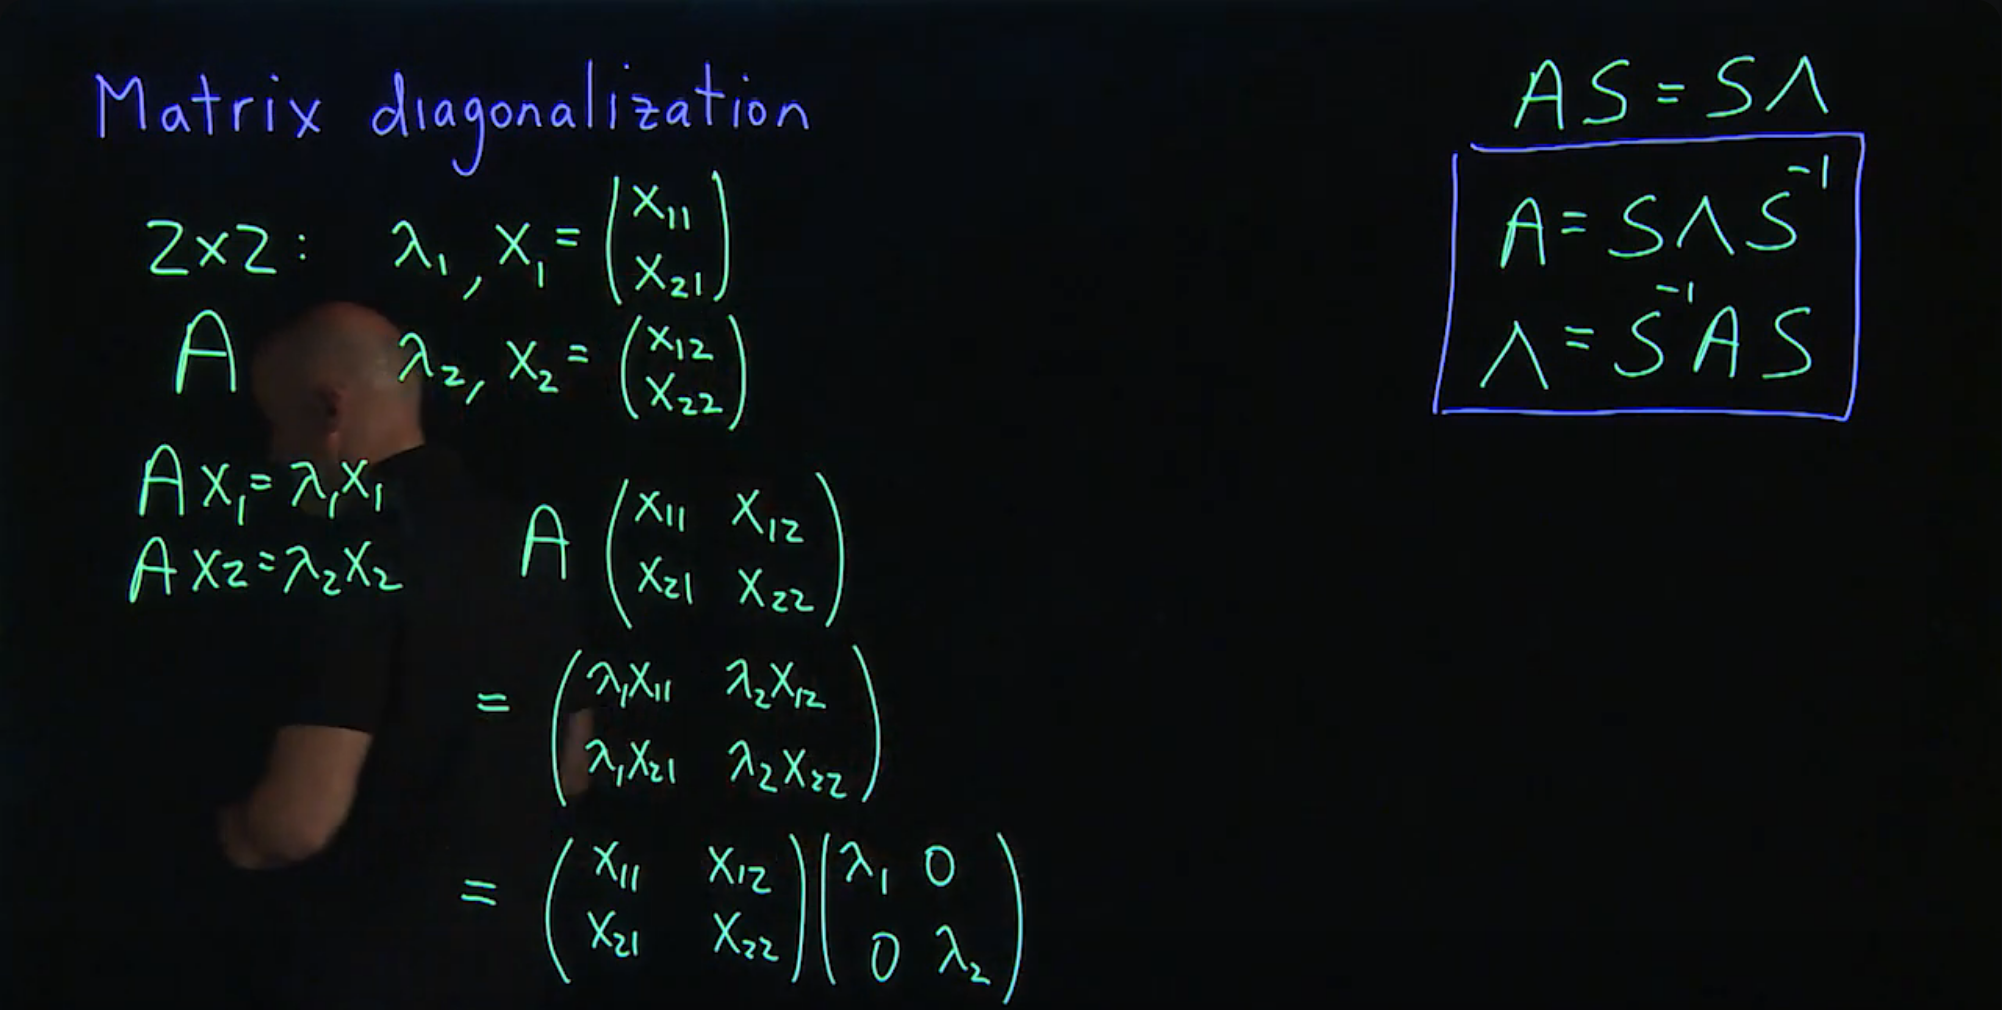 Matrix diagonalization
2x2: λ₁, x₁ = (x₁₁ x₂₁)
A λ₂, x₂ = (x₁₂ x₂₂)
Ax₁ = λ₁x₁
Ax₂ = λ₂x₂
A (x₁₁ x₁₂
x₂₁ x₂₂)
= (λ₁x₁₁ λ₂x₁₂
λ₁x₂₁ λ₂x₂₂)
= (x₁₁ x₁₂
x₂₁ x₂₂) (λ₁ 0
0 λ₂)
AS = SΛ
A = SΛS⁻¹
Λ = S⁻¹AS